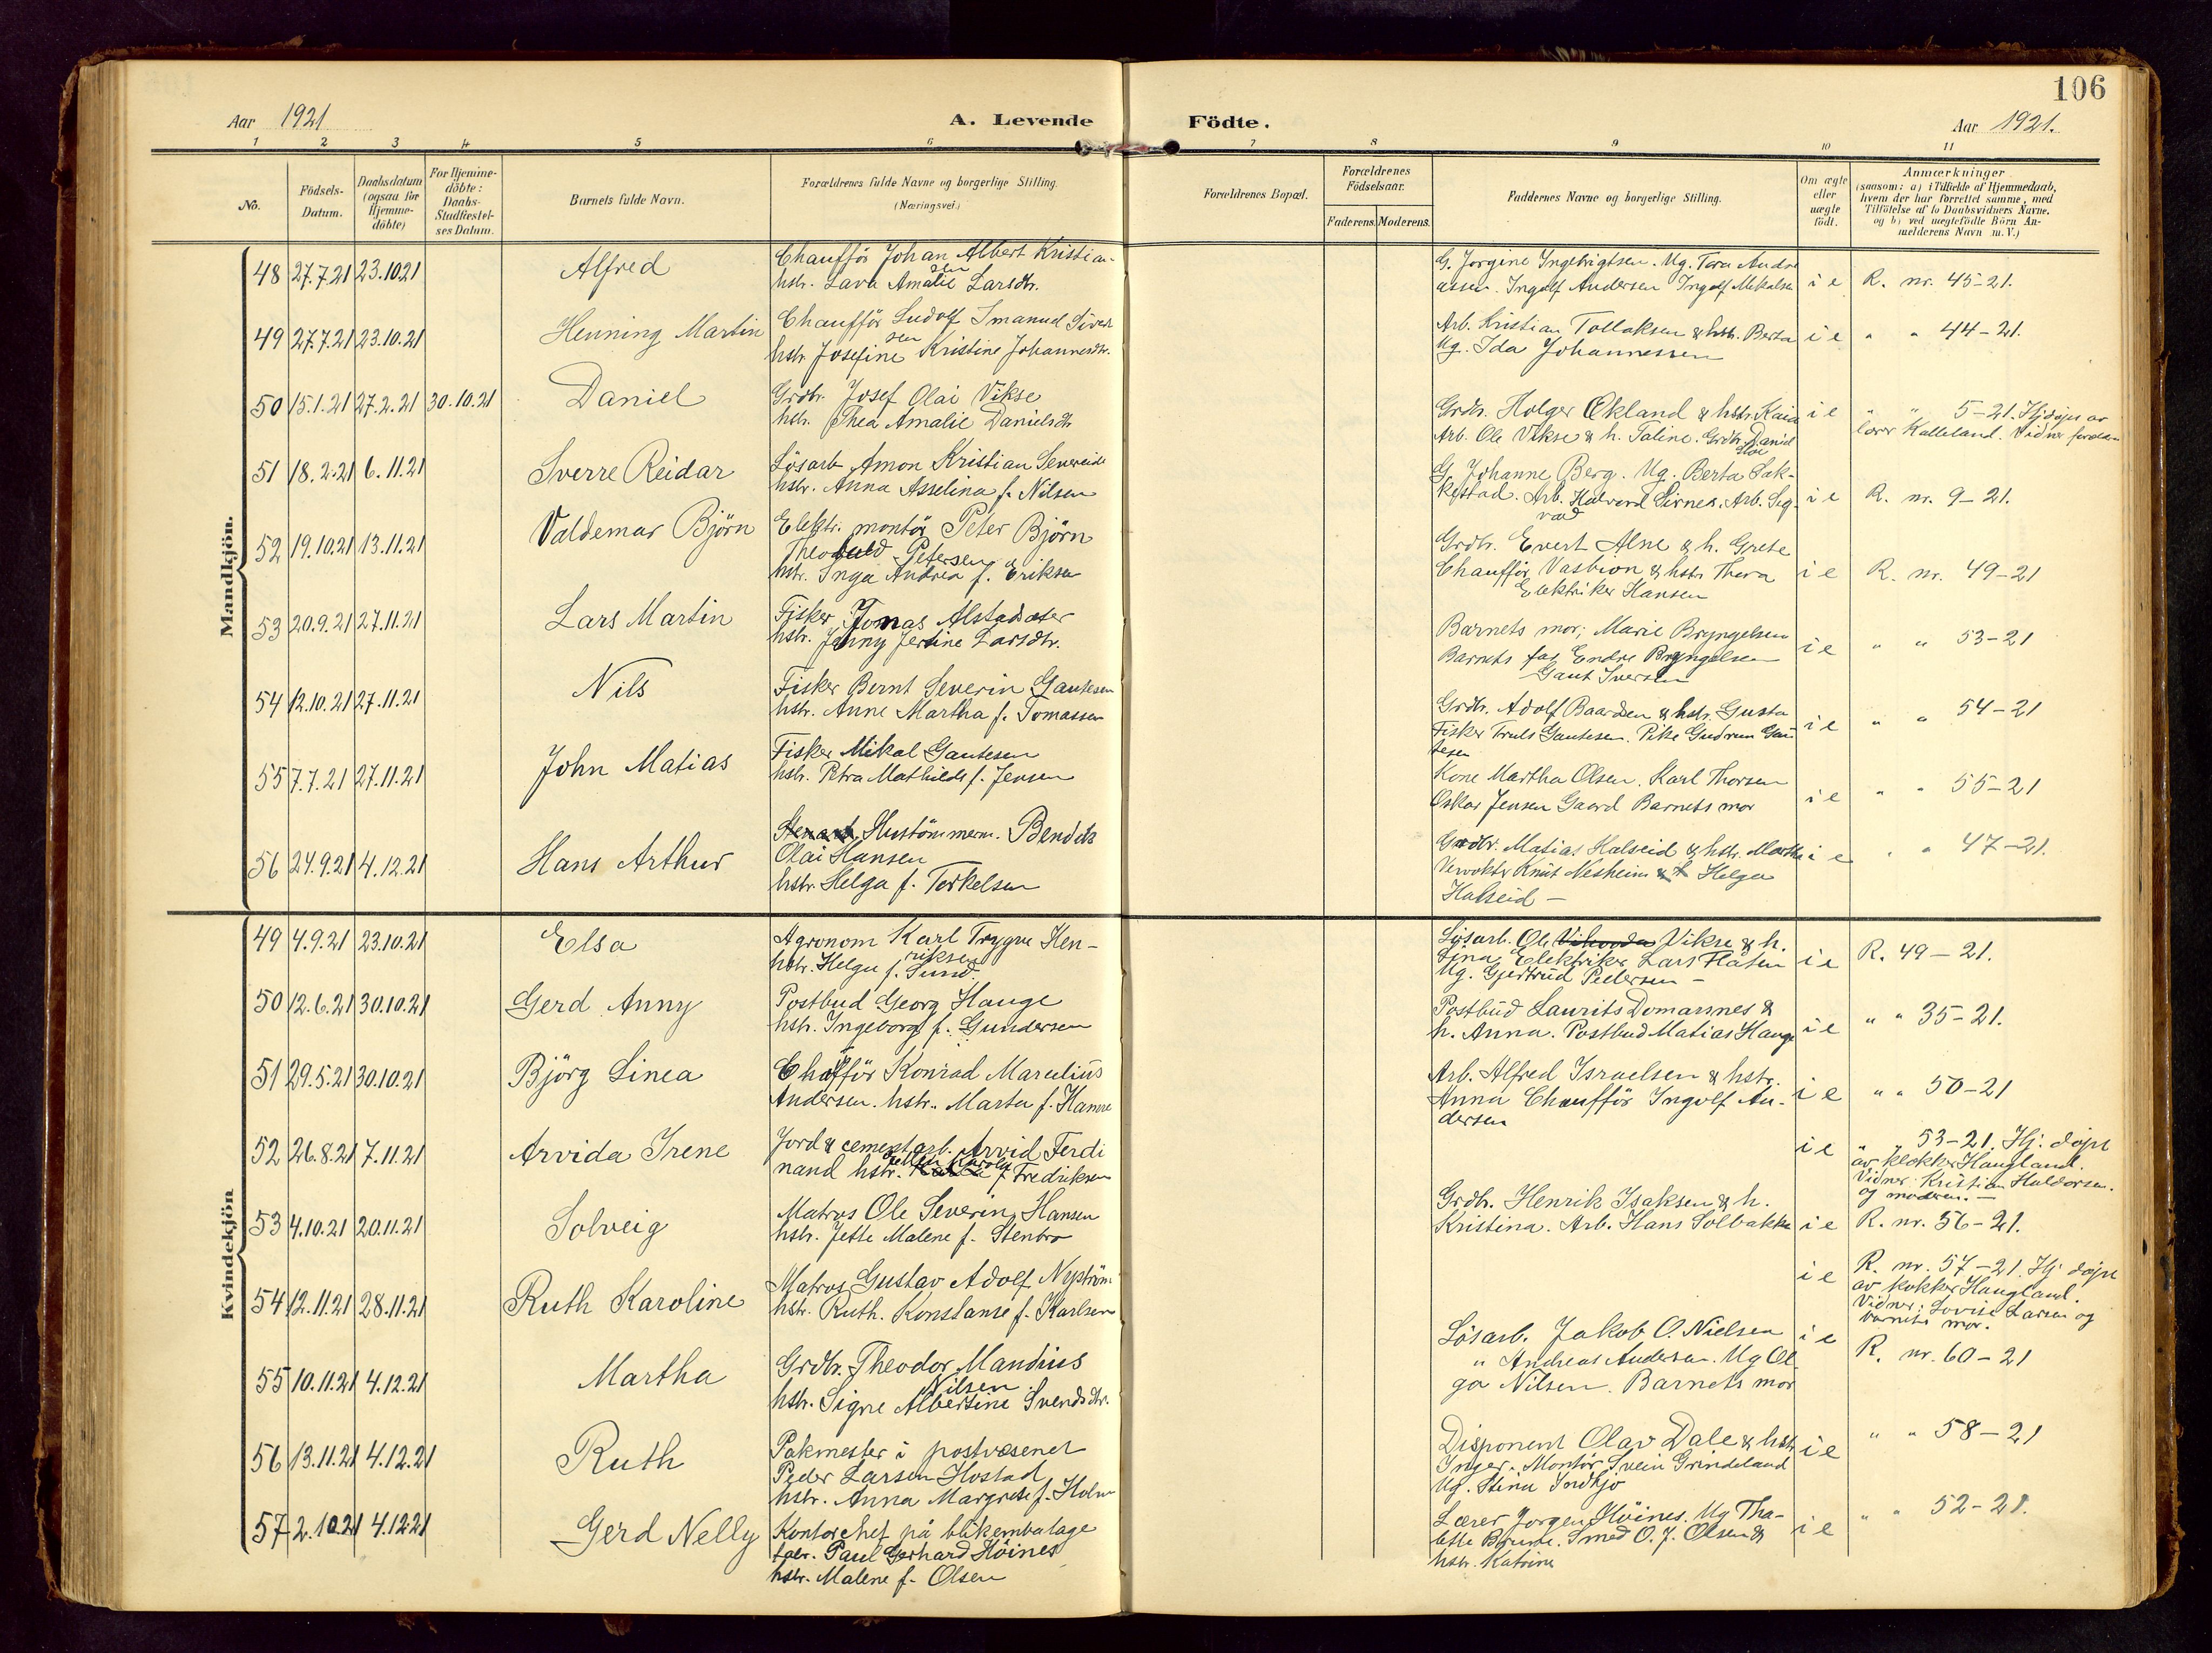 106
Aar 1921
A. Levende Födte.
Aar 1921.
1 2 3 4 5 6 7 8 9 10 11
No.
Födsels-
Datum.
Daabsdatum
(ogsaa for
Hjemme-
döbte)
For Hjemme-
döbte:
Daabs-
Stadfæstel-
ses Datum.
Barnets fulde Navn.
Forældrenes fulde Navne og borgerlige Stilling.
(Næringsvei.)
Forældrenes Bopæl.
Forældrenes
Födselsaar.
Faderens. Moderens.
Faddernes Navne og borgerlige Stilling.
Om ægte
eller
uægte
födt.
Anmærkninger
(saasom: a) i Tilfælde af Hjemmedaab,
hvem der har forrettet samme, med
Tilföielse af to Daabsvidners Navne,
og b) ved uegtefödte Börn An-
melderens Navn m. V.)
Mandkjön.
48 27.7.21 23.10.21 Alfred
Chaufför Johan Albert Kristian-
sen
hstr. Lava Amalie Larsdtr.
G. Jorgine Ingebrigtsen. Ug. Tora Andre
assen. Ingolf Andersen Ingolf Mikalsen
i e R. nr. 45-21.
49 27.7.21 23.10.21 Henning Martin
Chaufför Ludolf Imanuel Siver
sen
hstr. Josefine Kristine Johannesdtr.
Arb. Kristian Tollaksen & hstr. Berta
Ug. Ida Johannessen
i e " " 44-21.
50 15.1.21 27.2.21 30.10.21 Daniel
Grdbr. Josef Olai Vikse
hstr. Thea Amalie Danielsdtr
Grdbr. Holger Økland & hstr. Kaia
Arb. Ole Vikse & h. Taline. Grdbr. Daniel
i e " " 5-21. Hj.døpt av
lærer Kalleland. Vidner
51 18.2.21 6.11.21 Sverre Reidar
Lösarb. Amon Kristian Severeide
hstr. Anna Asselina f. Nilsen
G. Johanne Berg. Ug. Berta Sak-
kestad. Arb. Halvord Sirnes. Arb. Sig-
vad
i e R. nr. 9-21.
52 19.10.21 13.11.21 Valdemar Björn
Elektr. montör Peter Björn
Petersen
hstr. Inga Andrea f. Eriksen
Grdbr. Evert Alne & h. Grete
Chaufför & hstr. Thora
Elektriker Hansen
i e R. nr. 49-21
53 20.9.21 27.11.21 Lars Martin
Fisker Jonas Alstadsæter
hstr. Jenny Jertine Larsdtr.
Barnets mor, Marie Bryngelsen
Barnets far Endre Bryngelsen
Gaut Iversen
i e " " 53-21
54 12.10.21 27.11.21 Nils
Fisker Bernt Severin Gautesen
hstr. Anne Martha f. Tomassen
Grdbr. Adolf Baardsen & hstr. Gusta
Fisker Truls Gautesen. Pike Gudrun Gau
tesen
i e " " 54-21
55 7.7.21 27.11.21 John Matias
Fisker Mikal Gautesen
hstr. Petra Mathilde f. Jensen
Kone Martha Olsen. Karl Thorsen
Oskar Jensen Gaard Barnets mor
i e " " 55-21
56 24.9.21 4.12.21 Hans Arthur
Hustömmerm. Bendik
Olai Hansen
hstr. Helga f. Torkelsen
Grdbr. Matias Halseid & hstr. Martha
Knut Nesheim Helga
Halseid -
i e " " 47-21.
Kvindekjön
49 4.9.21 23.10.21 Elsa
Agronom Karl Trygve Hen-
riksen
hstr. Helga f. Sund.
Lösarb. Ole Vikse & h.
Tina. Elektriker Lars Flåten
Ug. Gjertrud Pedersen -
i e R. 49-21.
50 12.6.21 30.10.21 Gerd Anny
Postbud Georg Hauge
hstr. Ingeborg f. Gundersen
Postbud Laurits Domasnes &
h. Anna. Postbud Matias Hauge
i e " " 35-21.
51 29.5.21 30.10.21 Björg Linea
Chaufför Konrad Marelius
Andersen. hstr. Marta f. Hamre
Arb. Alfred Israelsen & hstr.
Anna Chaufför Ingolf An-
dersen
i e " " 50-21
52 26.8.21 7.11.21 Arvida Irene
Jord & cementarb. Arvid Ferdi
nand hstr. f. Fredriksen
i e " " 53-21. Hj. døpt
av klokker Haugland.
Vidner: Kristian Haldorsen.
og moderen. -
53 4.10.21 20.11.21 Solveig
Matros Ole Severin Hansen
hstr. Jette Malene f. Stenbro
Grdbr. Henrik Isaksen & h.
Kristina. Arb. Hans Solbakke
i e R. nr. 56-21.
54 12.11.21 28.11.21 Ruth Karoline
Matros Gustav Adolf Nyström
hstr. Ruth. Konstanse f. Karlsen
i e R. nr. 57-21. Hj. døpt
av klokker Haugland.
Vidner: Lovise Larsen og
barnets mor.
55 10.11.21 4.12.21 Martha
Grdbr. Theodor Mandius
Nilsen
hstr. Signe Albertine Svendsdtr.
Lösarb. Jakob O. Nielsen
" Andreas Andersen. Ug Ol
ga Nilsen. Barnets mor
i e R. nr. 60-21
56 13.11.21 4.12.21 Ruth
Pakmester i postvæsenet
Peder Larsen Hostad
hstr. Anna Margrete f. Holm
Disponent Olav Dale & hstr
Inger. Montör Svein Grindeland
Ug. Stina Indhjo
i e " " 58-21
57 2.10.21 4.12.21 Gerd Nelly
Kontorchef på blikembalage
fabr. Paul Gerhard Höines
hstr. Malene f. Olsen
Lærer Jørgen Höines. Ug Tha-
lette Smed O. J. Olsen &
hstr. Katrine
i e " " 52-21.